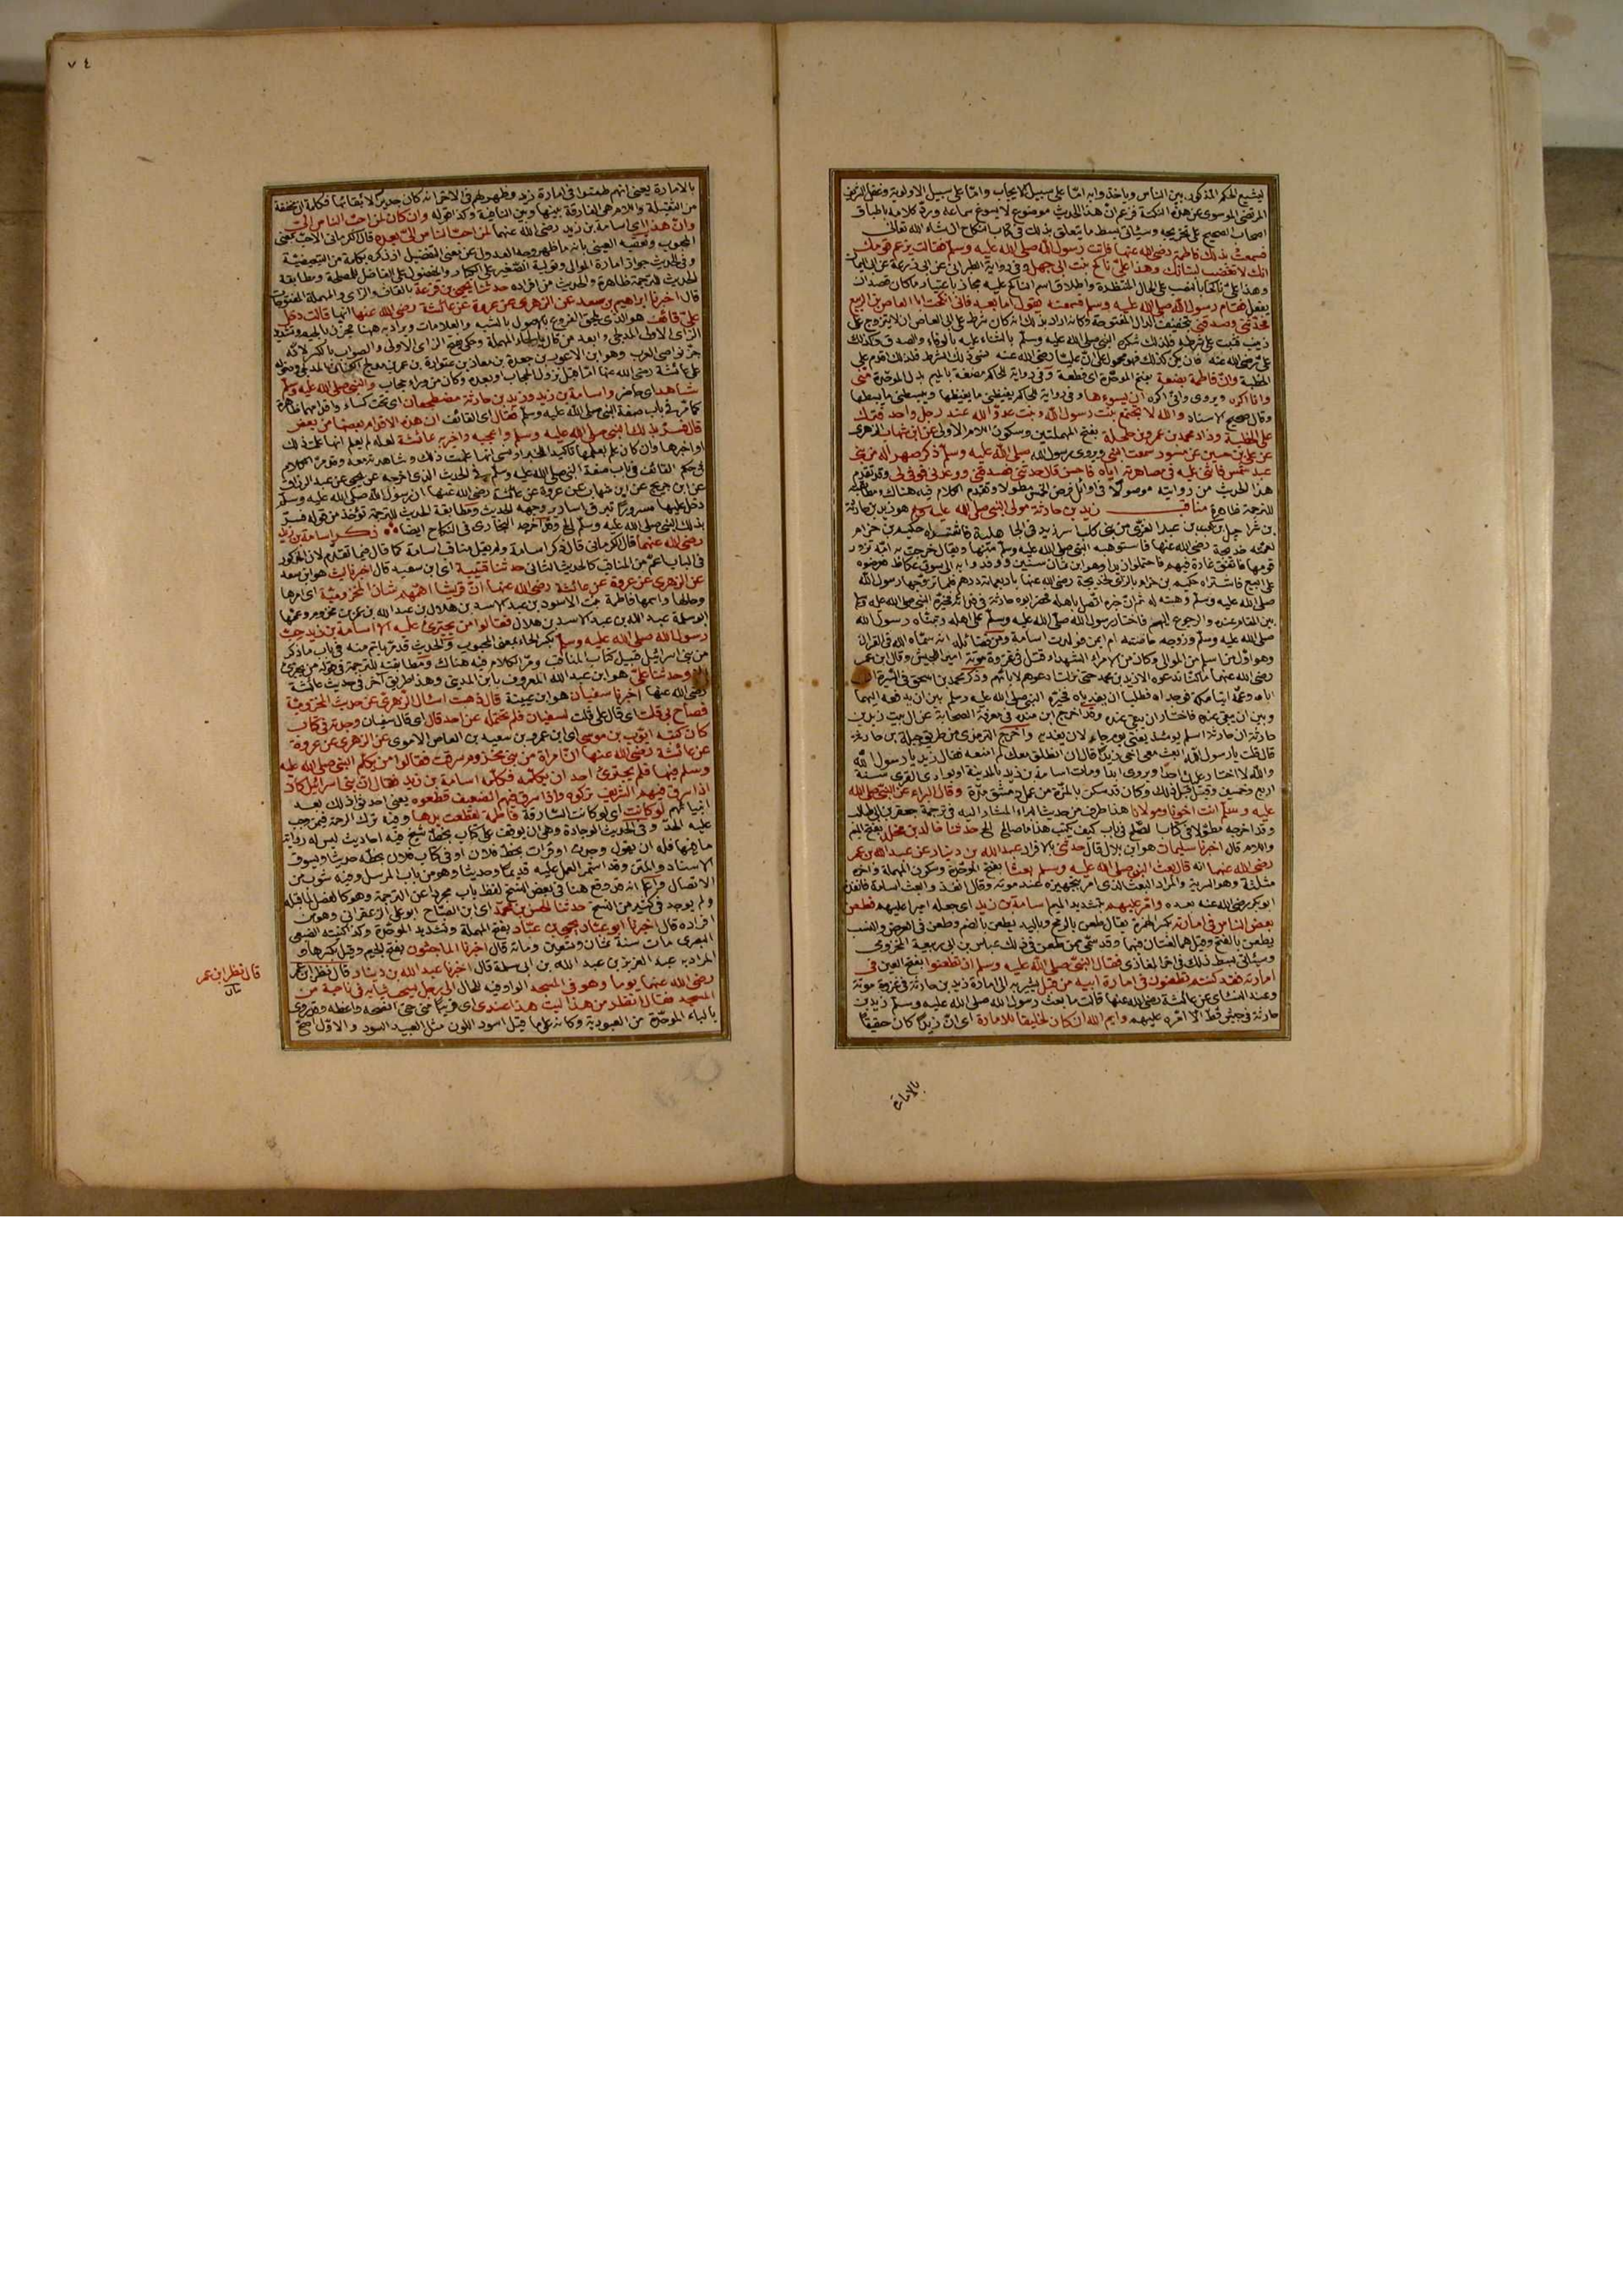 ليشيع الحكم المذكور بين الناس وياخذوا به امّا على سبيل الايجاب وامّا على سبيل الاولوية وغفل الشريف
المرتضى الموسوى عن هذه النكتة فزعم انّ هذا الحديث موضوع
اصحاب الصحيح على تخريجه وسيأتى بسط ما يتعلق بذلك فى كتاب النكاح ان شاء الله تعالى
فسمعتْ بذلك فاطمة رضى الله عنها فاتت رسول الله صلى الله عليه وسلم فقالت يزعم قومك
انك لا تغضب لبناتك وهذا علىّ ناكح بنت ابى جهل وفى رواية الطبرانى عن ابى
يفعل فقام رسول الله صلى الله عليه وسلم فسمعته يقول اما بعد فانى انكحت ابا العاص بن الربيع
فحدّثنى وصدقنى بتخفيف الدال المفتوحة
على رضى الله عنه
الخطبة وانّ فاطمة بضعة بفتح الموحّدة اى قطعة وفى رواية الحاكم مضغة بالميم بدل الموحّدة منّى
وانا اكره ويروى وانّى اكره ان يسوءها وفى رواية الحاكم يغيظنى ما يغيظها ويبسطنى ما يبسطها
وقال صحيح الاسناد والله لا تجتمع بنت رسول الله وبنت عدوّ الله عند رجل واحد فترك
علىّ الخطبة وزاد محمد بن عمرو بن حلحلة بفتح المهملتين وسكون اللام الاولى عن ابن شهاب الزهرى
عن علىّ بن حسين عن مسور سمعت النبى ويروى رسول الله صلى الله عليه وسلم ذكر صهرا له من بنى
عبد شمس فاثنى عليه فى مصاهرته ايّاه فاحسن قال حدثنى فصدقنى ووعدنى فوفى لى وقد تقدّم
هذا الحديث من روايته موصولاً فى اوائل فرض الخمس مطولا وتقدّم الكلام فيه هناك ومطابقته
للترجمة ظاهرة مناقب زيد بن حارثة مولى النبى صلى الله عليه وسلم هو زيد بن حارثة
بن شراحيل بن كعب بن عبد العزّى من بنى كلب اسر زيد فى الجاهلية فاشتراه حكيم بن حزام
لعمّته خديجة رضى الله عنها فاستوهبه النبى صلى الله عليه وسلم منها ويقال خرجت به امّه تزور
قومها فاتفق غارة فيهم فاحتملوا زيدا وهو ابن ثمان سنين ووفدوا به الى سوق عكاظ فعرضوه
على البيع فاشتراه حكيم بن حزام بالزاى لخديجة رضى الله عنها باربعمائة درهم فلما تزوّجها رسول الله
صلى الله عليه وسلم وهبته له ثم انّ خبره اتّصل باهله فحضر ابوه حارثة فى فدائه فخيّره النبى صلى الله عليه وسلم
بين المقام عنده والرجوع اليهم فاختار رسول الله صلى الله عليه وسلم على اهله وتبنّاه رسول الله
صلى الله عليه وسلم وزوّجه حاضنته ام ايمن فولدت اسامة ومن فضائله انه سمّاه الله فى القرآن
وهو اوّل من اسلم من الموالى وكان من الامراء الشهداء قتل فى غزوة موتة امير الجيش وقال ابن عمر
رضى الله عنهما ما كنّا ندعوه الا زيد بن محمد حتى نزلت ادعوهم لابائهم وذكر محمد بن اسحق فى السيرة
اباه وعمّه اتيا مكة فوجداه فطلبا ان يفدياه فخيّره النبى صلى الله عليه وسلم بين ان يدفعه اليهما
وبين ان يبقى عنده فاختار ان يبقى عنده وقد اخرج ابن منده فى معرفة الصحابة عن آل بيت زيد بن
حارثة ان حارثة اسلم يومئذ يعنى يوم جاء لان يفديه واخرج الترمذى من طريق جبلة بن حارثة
قال قلت يا رسول الله ابعث معى اخى زيداً قال ان انطلق معك لم امنعه فقال زيد يا رسول الله
والله لا اختار عليك احدًا ويروى ابدًا ومات اسامة بن زيد بالمدينة او بوادى القرى سنة
اربع وخمسين وقيل قبل ذلك وكان قد سكن بالمزّة من عمل دمشق مدّة وقال البراء عن النبى صلى الله
عليه وسلم انت اخونا ومولانا هذا طرف من حديث البراء المشار اليه فى ترجمة جعفر بن ابى طالب
وقد اخرجه مطولا فى كتاب الصّلح فى باب كيف يكتب هذا ما صالح الخ حدثنا خالد بن مخلد بفتح الميم
واللام قال اخبرنا سليمان هو ابن بلال قال حدثنى بالافراد عبد الله بن دينار عن عبد الله بن عمر
رضى الله عنهما انه قال بعث النبى صلى الله عليه وسلم بعثا بفتح الموحّدة وسكون المهملة وآخره
مثلثة وهو السرية والمراد البعث الذى امر بتجهيزه عند موته وقال انفذوا بعث اسامة فانفذه
ابو بكر رضى الله عنه بعده وامّر عليهم بتشديد الميم اسامة بن زيد اى جعله اميرا عليهم فطعن
بعض الناس فى امارته بكسر الهمزة يقال طعن بالرمح وباليد يطعن بالضم وطعن فى العرض والنسب
يطعن بالفتح وقيل هما لغتان فيهما وقد سمّى ممن طعن فى ذلك عياش بن ابى ربيعة المخزومى
وسيأتى بسط ذلك فى آخر المغازى فقال النبىّ صلى الله عليه وسلم ان تطعنوا بفتح العين فى
امارته فقد كنتم تطعنون فى امارة ابيه من قبل يشير به الى امارة زيد بن حارثة فى غزوة موتة
وعند النسائى عن عائشة رضى الله عنها قالت ما بعث رسول الله صلى الله عليه وسلم زيد بن
حارثة فى جيش قطّ الّا امّره عليهم وايم الله ان كان لخليقا للامارة اى انّ زيداً كان حقيقًا
بالامارة
٧٤
بالامارة يعنى انهم طعنوا فى امارة زيد وظهر لهم فى الآخر انه كان جديرا لائقا بها فكلمة ان مخففة
من الثقيلة واللام هى الفارقة بينها وبين النافية وكذا قوله وان كان لمن احبّ الناس الىّ
وانّ هذا اى اسامة بن زيد رضى الله عنهما لمن احبّ الناس الىّ بعده قال الكرمانى الاحبّ بمعنى
المحبوب وتعقبه العينى بانه ما ظهر وجه العدول عن معنى التفضيل اذ ذكره بكلمة من التبعيضيّة
وفى الحديث جواز امارة الموالى وتولية الصّغير على الكبار والمفضول على الفاضل للمصلحة ومطابقة
الحديث للترجمة ظاهرة والحديث من افراده حدثنا يحيى بن قزعة بالقاف والزاى والمهملة المفتوحات
قال اخبرنا ابراهيم بن سعد عن الزهرى عن عروة عن عائشة رضى الله عنها انها قالت دخل
علىّ قائف هو الذى يلحق الفروع بالاصول بالشبه والعلامات ويراد به ههنا مجزّز بالجيم وتشديد
الزاى الاولى المدلجى
على عائشة رضى الله عنها امّا قبل نزول الحجاب او بعده وكان من وراء حجاب والنبى صلى الله عليه وسلم
شاهد اى حاضر واسامة بن زيد وزيد بن حارثة مضطجعان اى تحت كساء واقدامهما ظاهرة
كما مرّ فى باب صفة النبى صلى الله عليه وسلم فقال اى القائف ان هذه الاقدام بعضها من بعض
قال فسرّ بذلك النبى صلى الله عليه وسلم واعجبه واخبر به عائشة لعله لم يعلم انها علمت ذلك
عن ابن جريج عن ابن شهاب عن عروة عن عائشة رضى الله عنها ان رسول الله صلى الله عليه وسلم
دخل عليها مسرورًا تبرق اسارير وجهه الحديث ومطابقة الحديث للترجمة تؤخذ من قوله فسرّ
بذلك النبى صلى الله عليه وسلم الخ وقد اخرجه البخارى فى النكاح ايضا ذكر اسامة بن زيد
رضى الله عنهما قال الكرمانى قال ذكر اسامة ولم يقل مناقب اسامة كما قال فيما تقدّم لان المذكور
فى الباب اعمّ من المناقب كالحديث الثانى حدثنا قتيبة اى ابن سعيد قال اخبرنا ليث هو ابن سعد
عن الزهرى عن عروة عن عائشة رضى الله عنها انّ قريشا اهمّهم شان المخزوميّة اى امرها
وحالها واسمها فاطمة بنت الاسود بن عبد الاسد بن هلال بن عبد الله بن عمر بن مخزوم وعمّها
ابو سلمة عبد الله بن عبد الاسد بن هلال فقالوا من يجترئ عليه الا اسامة بن زيد حِبّ
رسول الله صلى الله عليه وسلم بكسر الحاء بمعنى المحبوب والحديث قد مرّ باتم منه فى باب ما ذكر
من بنى اسرائيل قبيل كتاب المناقب ومرّ الكلام فيه هناك ومطابقته للترجمة فى قوله من يجترئ
وحدثنا علىّ هو ابن عبد الله المعروف بابن المدينى وهذا طريق آخر فى حديث عائشة
رضى الله عنها اخبرنا سفيان هو ابن عيينة قال ذهبت اسأل الزهرى عن حديث المخزوميّة
فصاح بى قلت اى قال على قلت لسفيان فلم تحتمله عن احد قال اى قال سفيان وجدته فى كتاب
كان كتبه ايّوب بن موسى اى ابن عمرو بن سعيد بن العاص الاموى عن الزهرى عن عروة
عن عائشة رضى الله عنها انّ امرأة من بنى مخزوم سرقت فقالوا من يكلّم النبى صلى الله عليه
وسلم فيها فلم يجترئ احد ان يكلّمه فكلّمه اسامة بن زيد فقال انّ بنى اسرائيل كان
اذا سرق فيهم الشريف تركوه واذا سرق فيهم الضعيف قطعوه يعنى احدثوا ذلك بعد
انبيائهم لو كانت اى لو كانت السّارقة فاطمة لقطعت يدها وفيه ترك الرحمة فيمن وجب
عليه الحدّ وفى الحديث الوجادة وهى ان يوقف على كتاب بخطّ شيخ فيه احاديث ليس له رواية
ما فيها فله ان يقول وجدت او قرات بخطّ فلان او فى كتاب فلان بخطّه حدثنا ويسوق
الاسناد والمتن وقد استمرّ العمل عليه قديمًا وحديثًا وهو من باب المرسل وفيه شوب من
الاتصال واعلم انه قد وقع هنا فى بعض النسخ لفظ باب مجرّدا عن الترجمة وهو كالفصل لما قبله
ولم يوجد فى كثير من النسخ حدثنا الحسن بن محمد اى ابن الصبّاح ابو على الزعفرانى وهو من
افراده قال اخبرنا ابو عبّاد يحيى بن عبّاد بفتح المهملة وتشديد الموحّدة وكذا كنيته الضبعى
البصرى مات سنة ثمان وتسعين ومائة قال اخبرنا الماجشون بفتح الجيم وقيل بكسرها و
المراد به عبد العزيز بن عبد الله بن ابى سلمة قال اخبرنا عبد الله بن دينار قال نظر ابن عمر
رضى الله عنهما يوما وهو فى المسجد الواو فيه للحال الى رجل يسحب ثيابه فى ناحية من
المسجد فقال انظر من هذا ليت هذا عندى اى قريبًا منى حتى انصحه واعظه وقد روى
بالباء الموحّدة من العبودية وكانه على ما قيل اسود اللون مثل العبيد السود والاوّل اصحّ
قال نظر ابن عمر